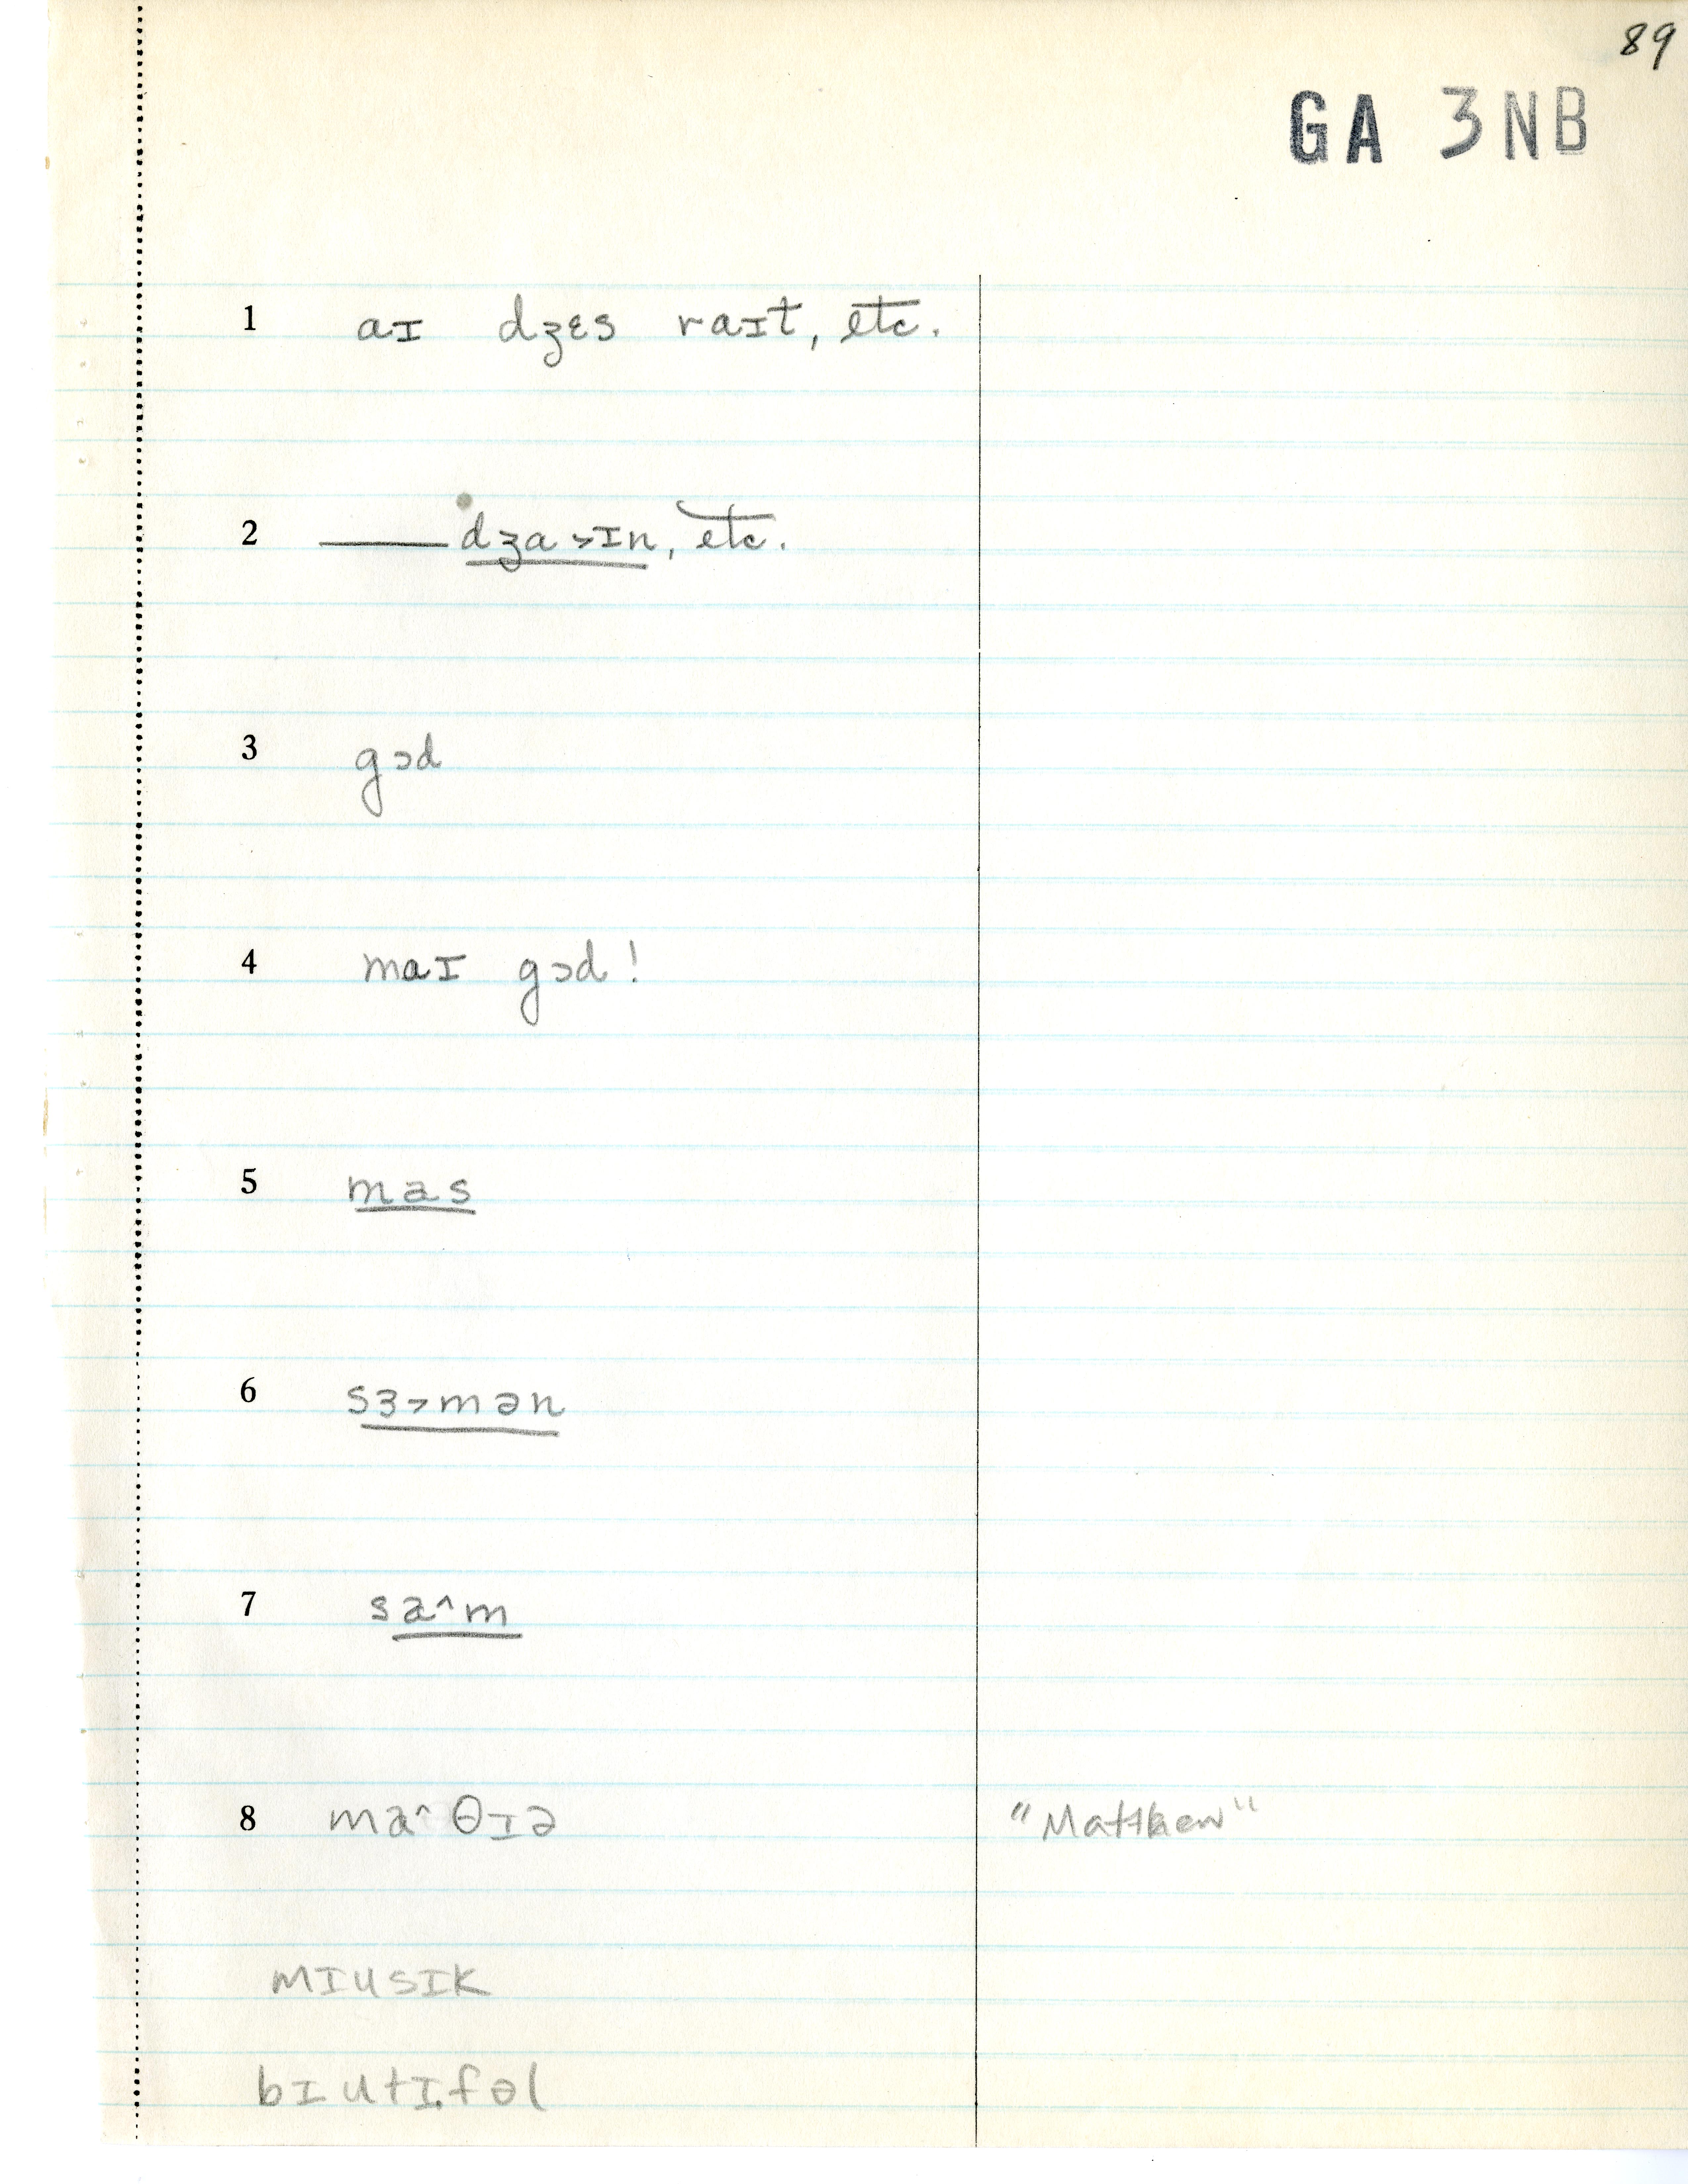 89
GA 3NB
1 aɪ dʒɛs raɪt, etc.
2 —— dʒa˃ɪn, etc.
3 gɔd
4 maɪ gɔd!
5 mas
6 sɜ˃mən
7 sa^m
8 ma^θɪə "Matthew"
mɪusɪk
bɪutɪ.fəl